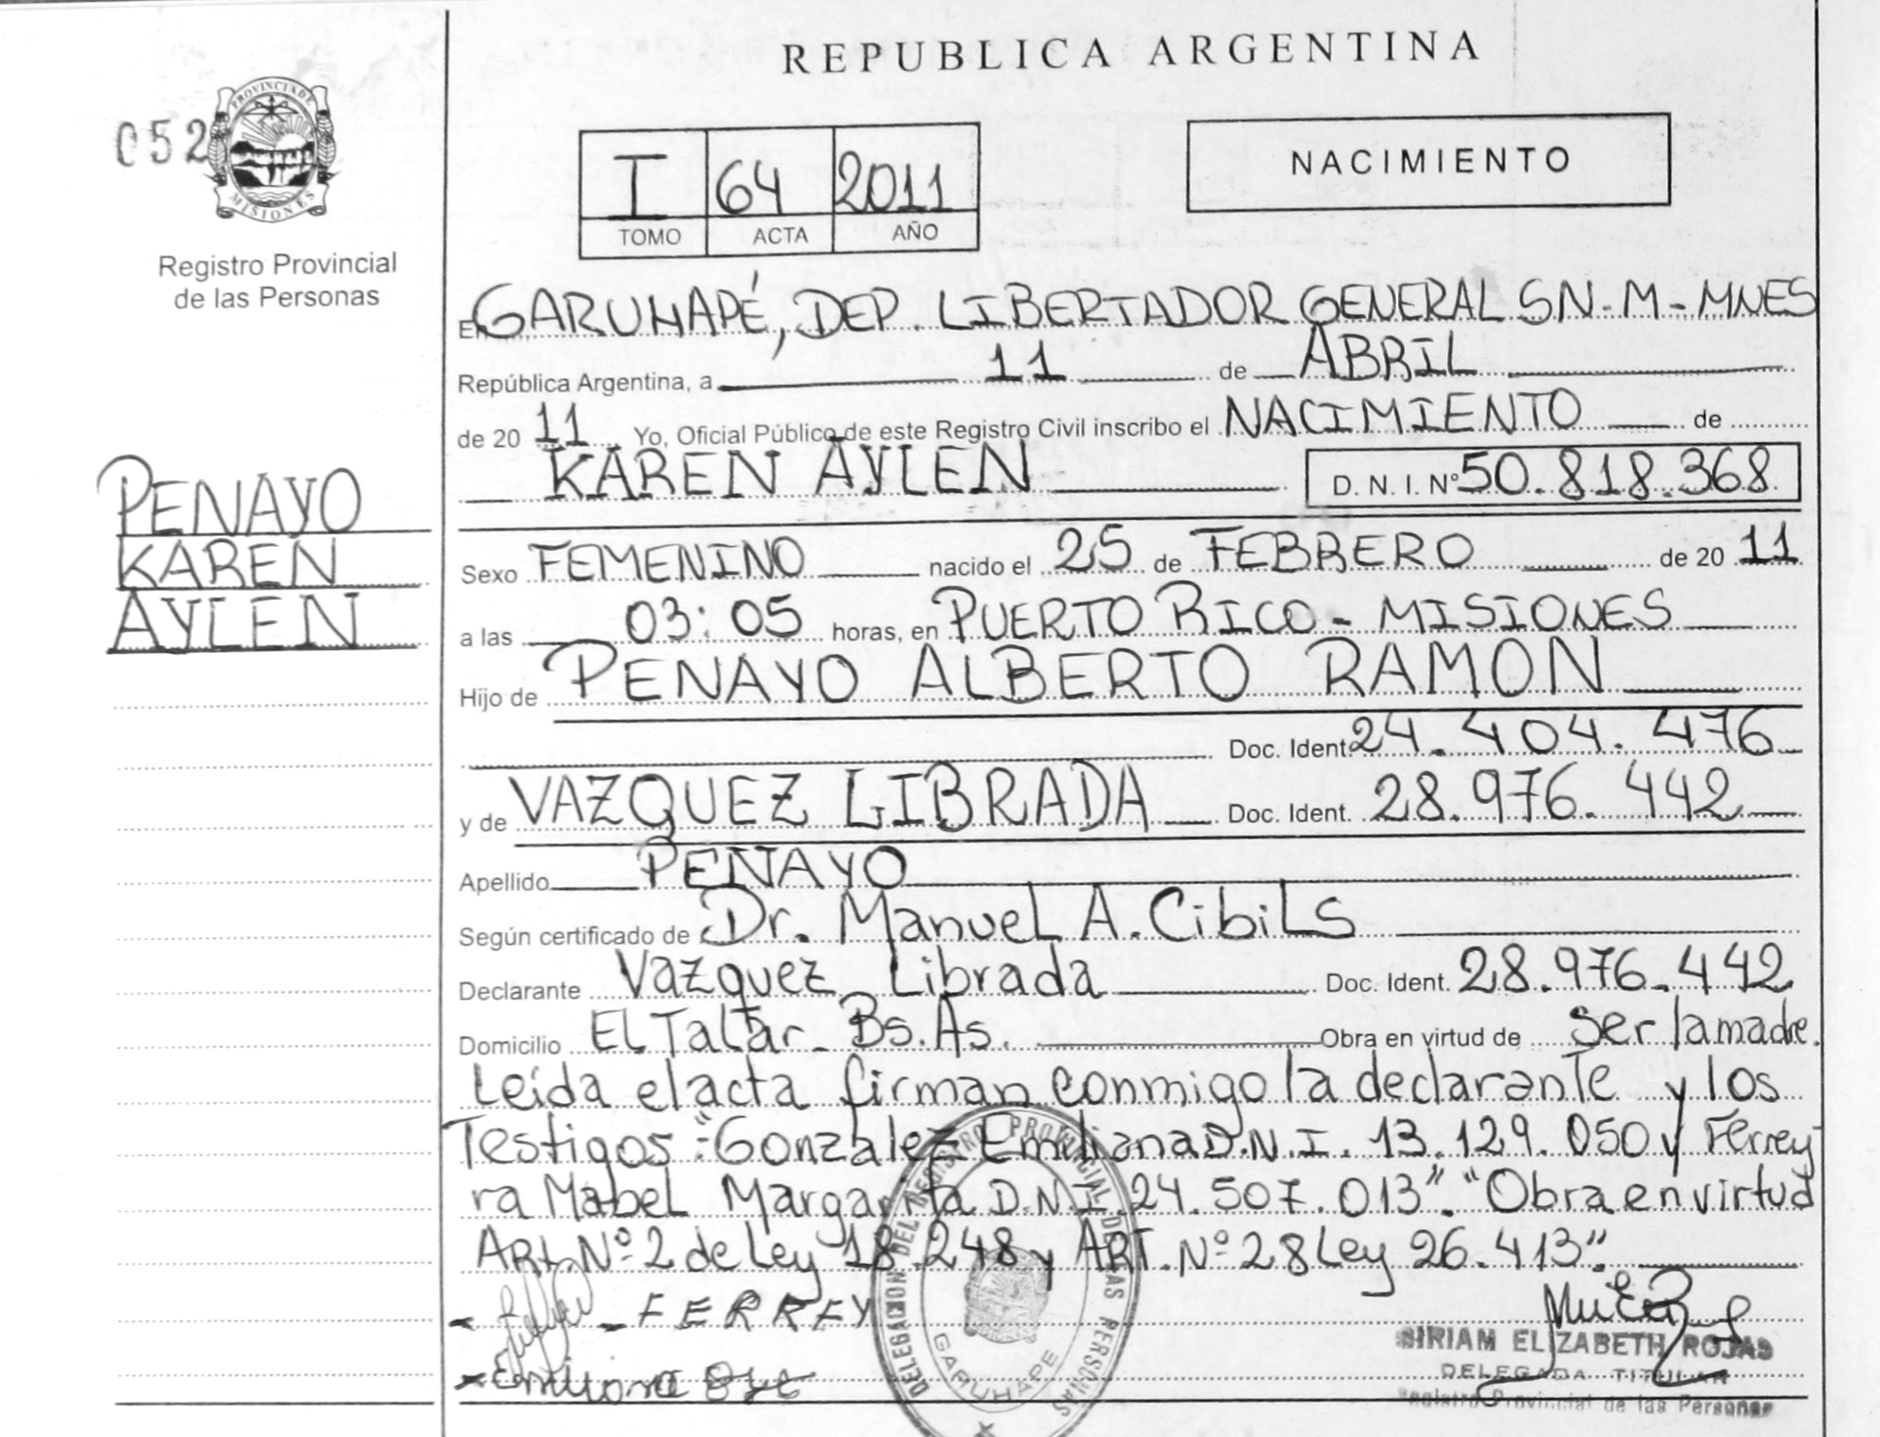 REPUBLICA ARGENTINA
052
PROVINCIA DE MISIONES
Registro Provincial
de las Personas
I 64 2011
TOMO ACTA AÑO
NACIMIENTO
En GARUHAPÉ, DEP. LIBERTADOR GENERAL SN-M-MNES
República Argentina, a 11 de ABRIL
de 20 11 Yo, Oficial Público de este Registro Civil inscribo el NACIMIENTO de
KAREN AYLEN D. N. I. Nº 50.818.368
PENAYO
KAREN
AYLEN
Sexo FEMENINO nacido el 25 de FEBRERO de 20 11
a las 03:05 horas, en PUERTO RICO - MISIONES
Hijo de PENAYO ALBERTO RAMON
Doc. Ident. 24.404.476
y de VAZQUEZ LIBRADA Doc. Ident. 28.976.442
Apellido PENAYO
Según certificado de Dr. Manuel A. Cibils
Declarante Vazquez Librada Doc. Ident. 28.976.442
Domicilio El Talar - Bs.As. Obra en virtud de ser la madre.
Leída el acta firman conmigo la declarante y los
Testigos: "Gonzalez Emiliana D.N.I. 13.129.050 y Ferrey
ra Mabel Margarita D.N.I. 24.507.013". "Obra en virtud
Art. Nº 2 de Ley 18.248 y ART. Nº 28 Ley 26.413".
- FERREY
DELEGACION DEL REGISTRO PROVINCIAL DE LAS PERSONAS
GARUHAPE
Emiliana
MIRIAM ELIZABETH ROJAS
DELEGADA TITULAR
Registro Provincial de las Personas